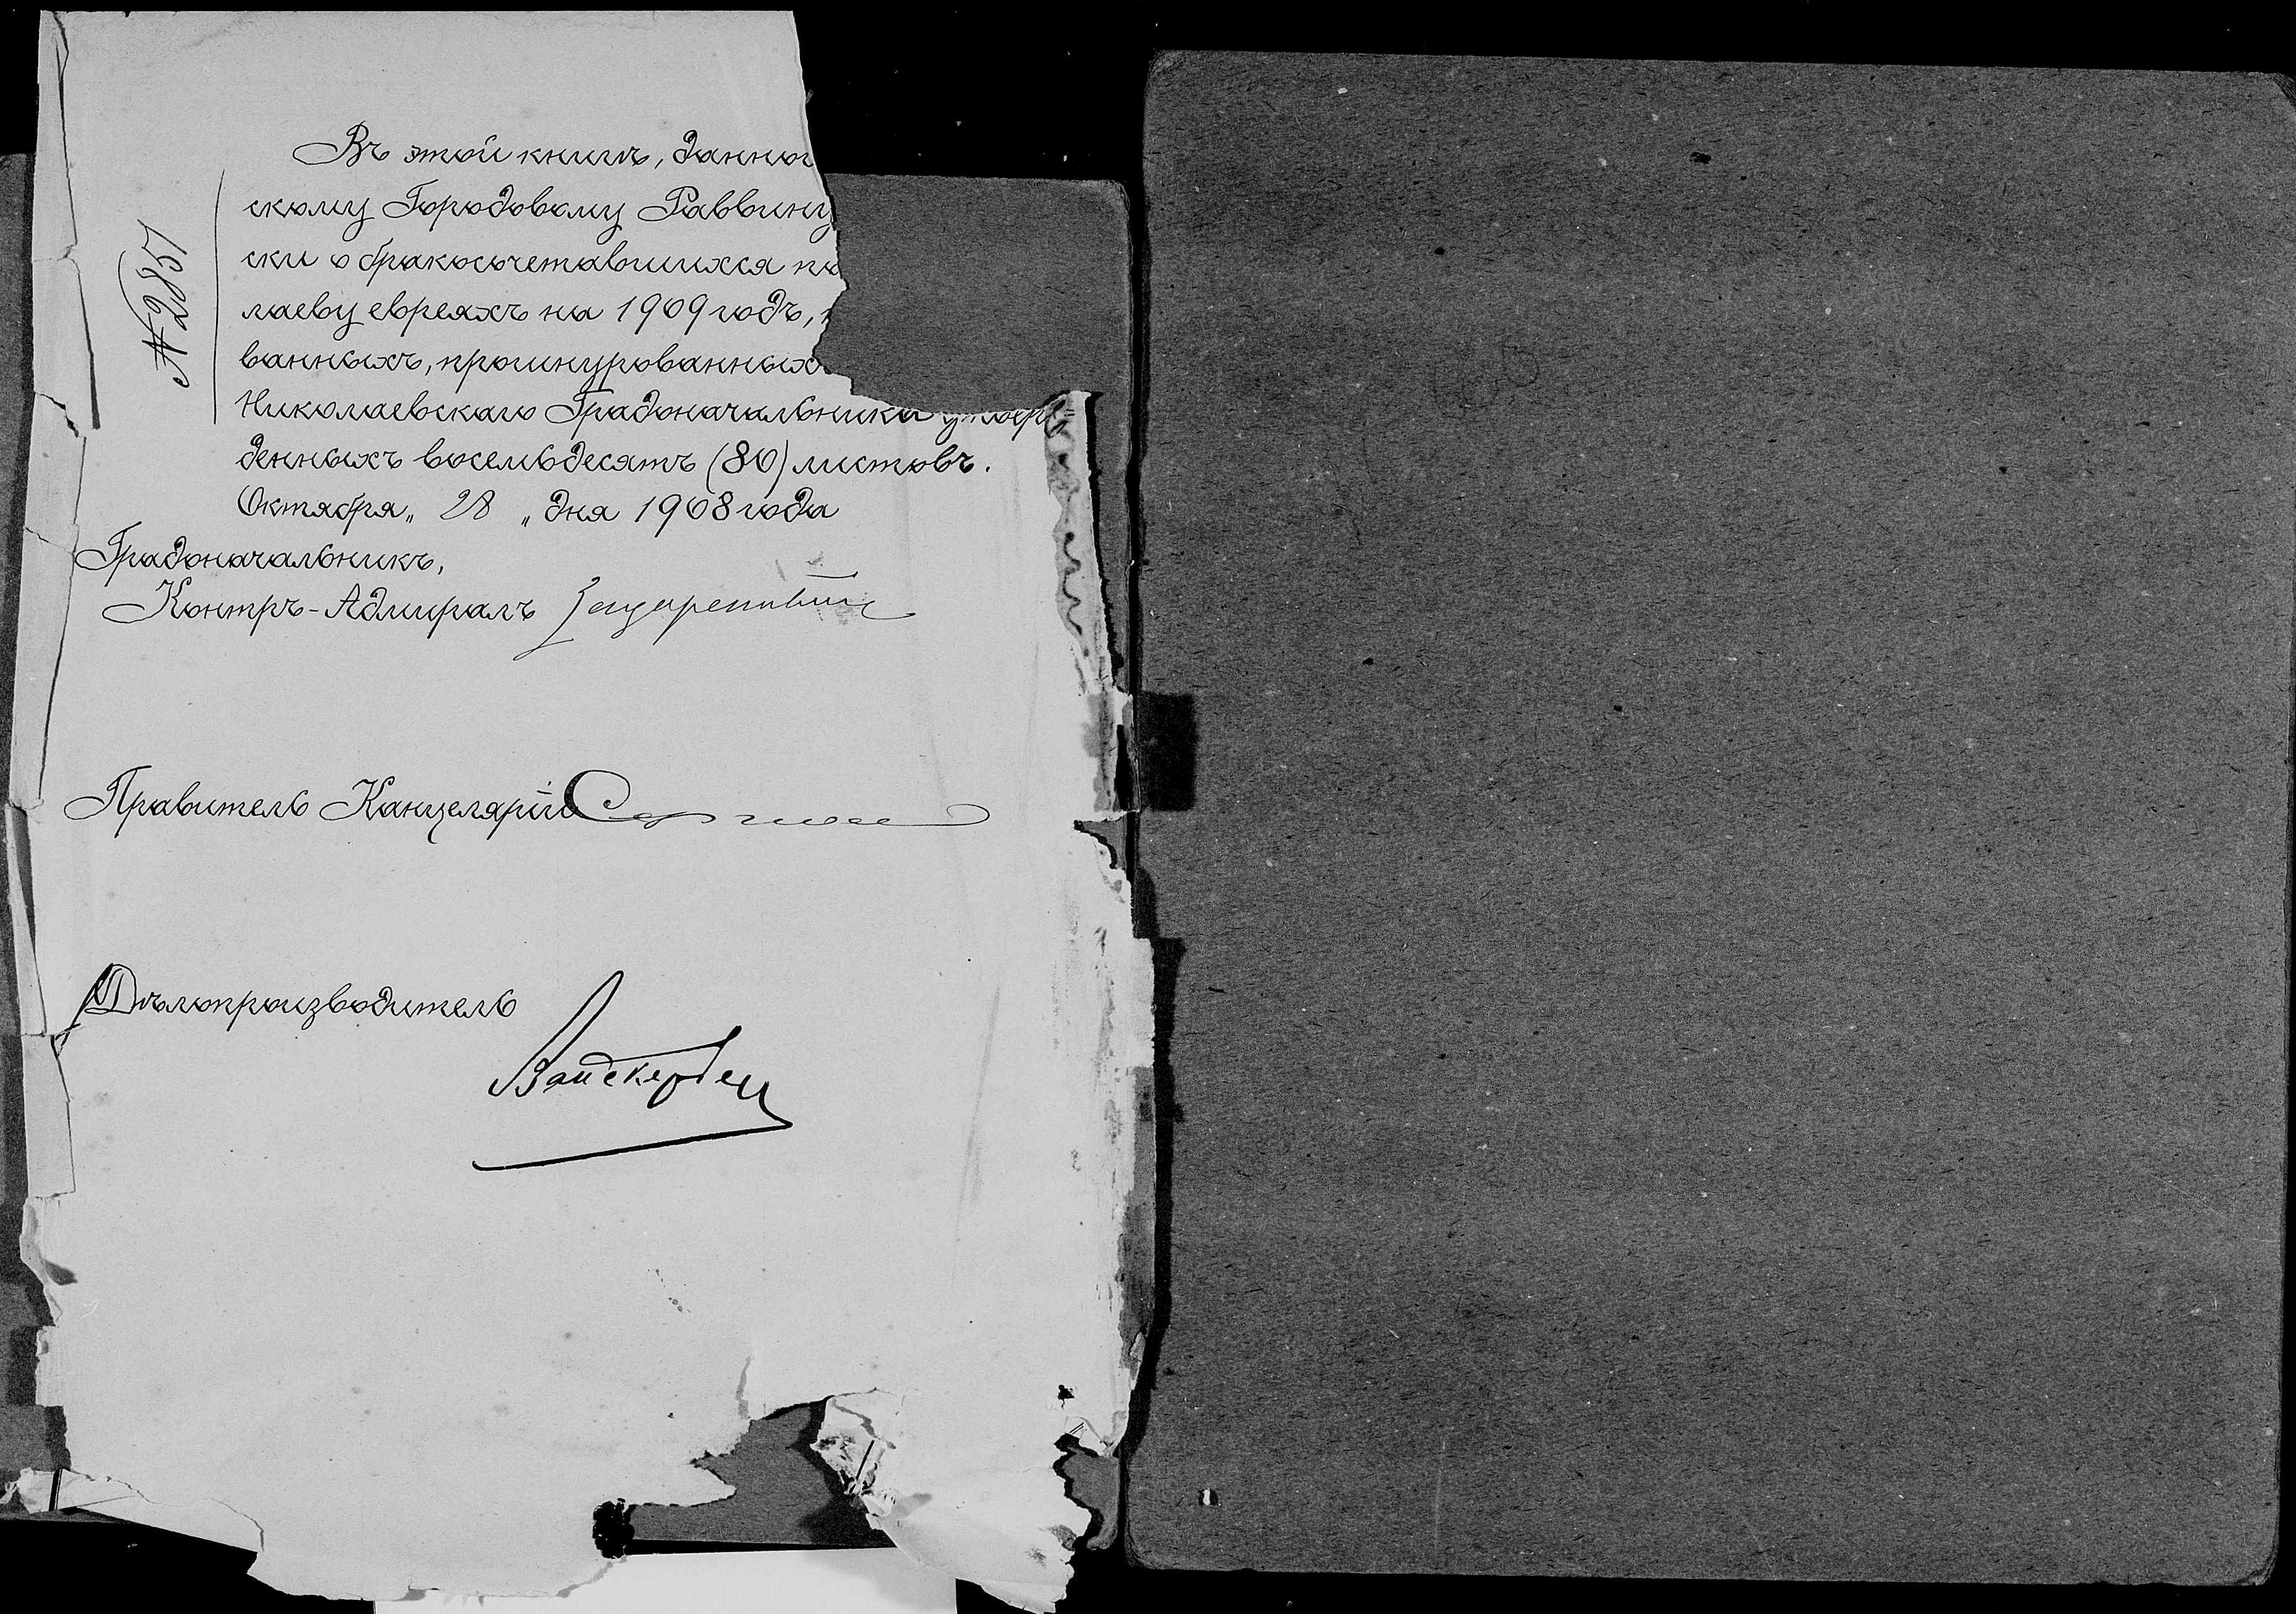 № 2851
Въ этой книгѣ, данно
скому Городовому Раввину
ски о бракосочетавшихся по
лаеву евреяхъ на 1909 годъ,
ванныхъ, прошнурованныхъ
Николаевскаго Градоначальника утверж=
денныхъ восемьдесятъ (80) листовъ.
Октября „ 28 „ дня 1908 года
Градоначальникъ,
Контръ-Адмиралъ
Правитель Канцеляріи
Дѣлопроизводитель